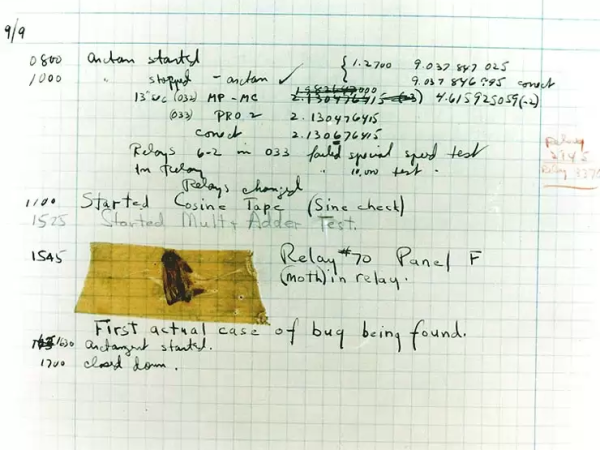 9/9
0800 arctan started { 1.2700 9.037 847 025
1000 " stopped - arctan ✓ 9.037 846 995 correct
13"uc (032) MP-MC 2.130476415 4.615925059(-2)
(033) PRO 2 2.130476415
correct 2.130676415
Relays 6-2 in 033 failed special speed test
In Relay " 10,000 test.
Relays changed
1100 Started Cosine Tape (Sine check)
1525 Started Mult + Adder Test.
1545 Relay #70 Panel F
(moth) in relay.
First actual case of bug being found.
1630 arctangent started.
1700 closed down.
Relay
2145
Relay